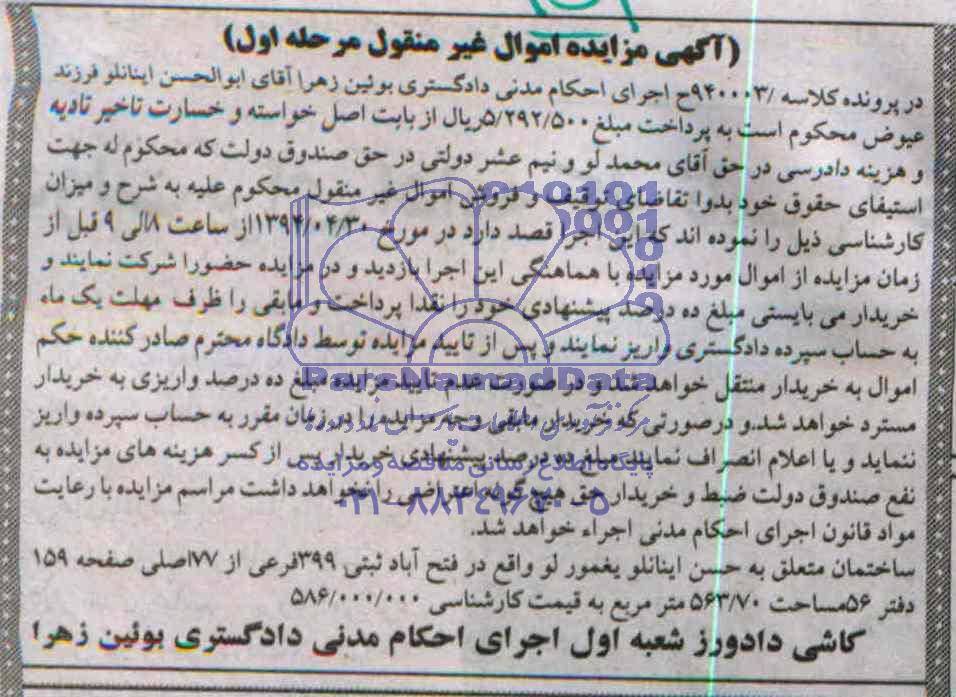 (آگهی مزایده اموال غیر منقول مرحله اول)
در پرونده کلاسه /۹۴۰۰۰۳ح اجرای احکام مدنی دادگستری بوئین زهرا آقای ابوالحسن اینانلو فرزند
عیوض محکوم است به پرداخت مبلغ ۵/۲۹۲/۵۰۰ریال از بابت اصل خواسته و خسارت تاخیر تادیه
و هزینه دادرسی در حق آقای محمد لو و نیم عشر دولتی در حق صندوق دولت که محکوم له جهت
استیفای حقوق خود بدوا تقاضای توقیف و فروش اموال غیر منقول محکوم علیه به شرح و میزان
کارشناسی ذیل را نموده اند که این اجرا قصد دارد در مورخ ۱۳۹۴/۰۴/۳۰از ساعت ۸الی ۹ قبل از
زمان مزایده از اموال مورد مزایده با هماهنگی این اجرا بازدید و در مزایده حضورا شرکت نمایند و
خریدار می بایستی مبلغ ده درصد پیشنهادی خود را نقدا پرداخت و مابقی را ظرف مهلت یک ماه
به حساب سپرده دادگستری واریز نمایند و پس از تایید مزایده توسط دادگاه محترم صادر کننده حکم
اموال به خریدار منتقل خواهد شد و در صورت عدم تایید مزایده مبلغ ده درصد واریزی به خریدار
مسترد خواهد شد.و درصورتی که خریدار مابقی وجه مزایده را در زمان مقرر به حساب سپرده واریز
ننماید و یا اعلام انصراف نماید مبلغ ده درصد پیشنهادی خریدار پس از کسر هزینه های مزایده به
نفع صندوق دولت ضبط و خریدار حق هیچ گونه اعتراضی را نخواهد داشت مراسم مزایده با رعایت
مواد قانون اجرای احکام مدنی اجراء خواهد شد.
ساختمان متعلق به حسن اینانلو یغمور لو واقع در فتح آباد ثبتی ۳۹۹فرعی از ۷۷اصلی صفحه ۱۵۹
دفتر ۵۶مساحت ۵۶۳/۷۰ متر مربع به قیمت کارشناسی ۵۸۶/۰۰۰/۰۰۰
کاشی دادورز شعبه اول اجرای احکام مدنی دادگستری بوئین زهرا
ParsNamadData
پایگاه اطلاع رسانی مناقصه و مزایده
۰۲۱-۸۸۳۴۹۶۷۰-۵